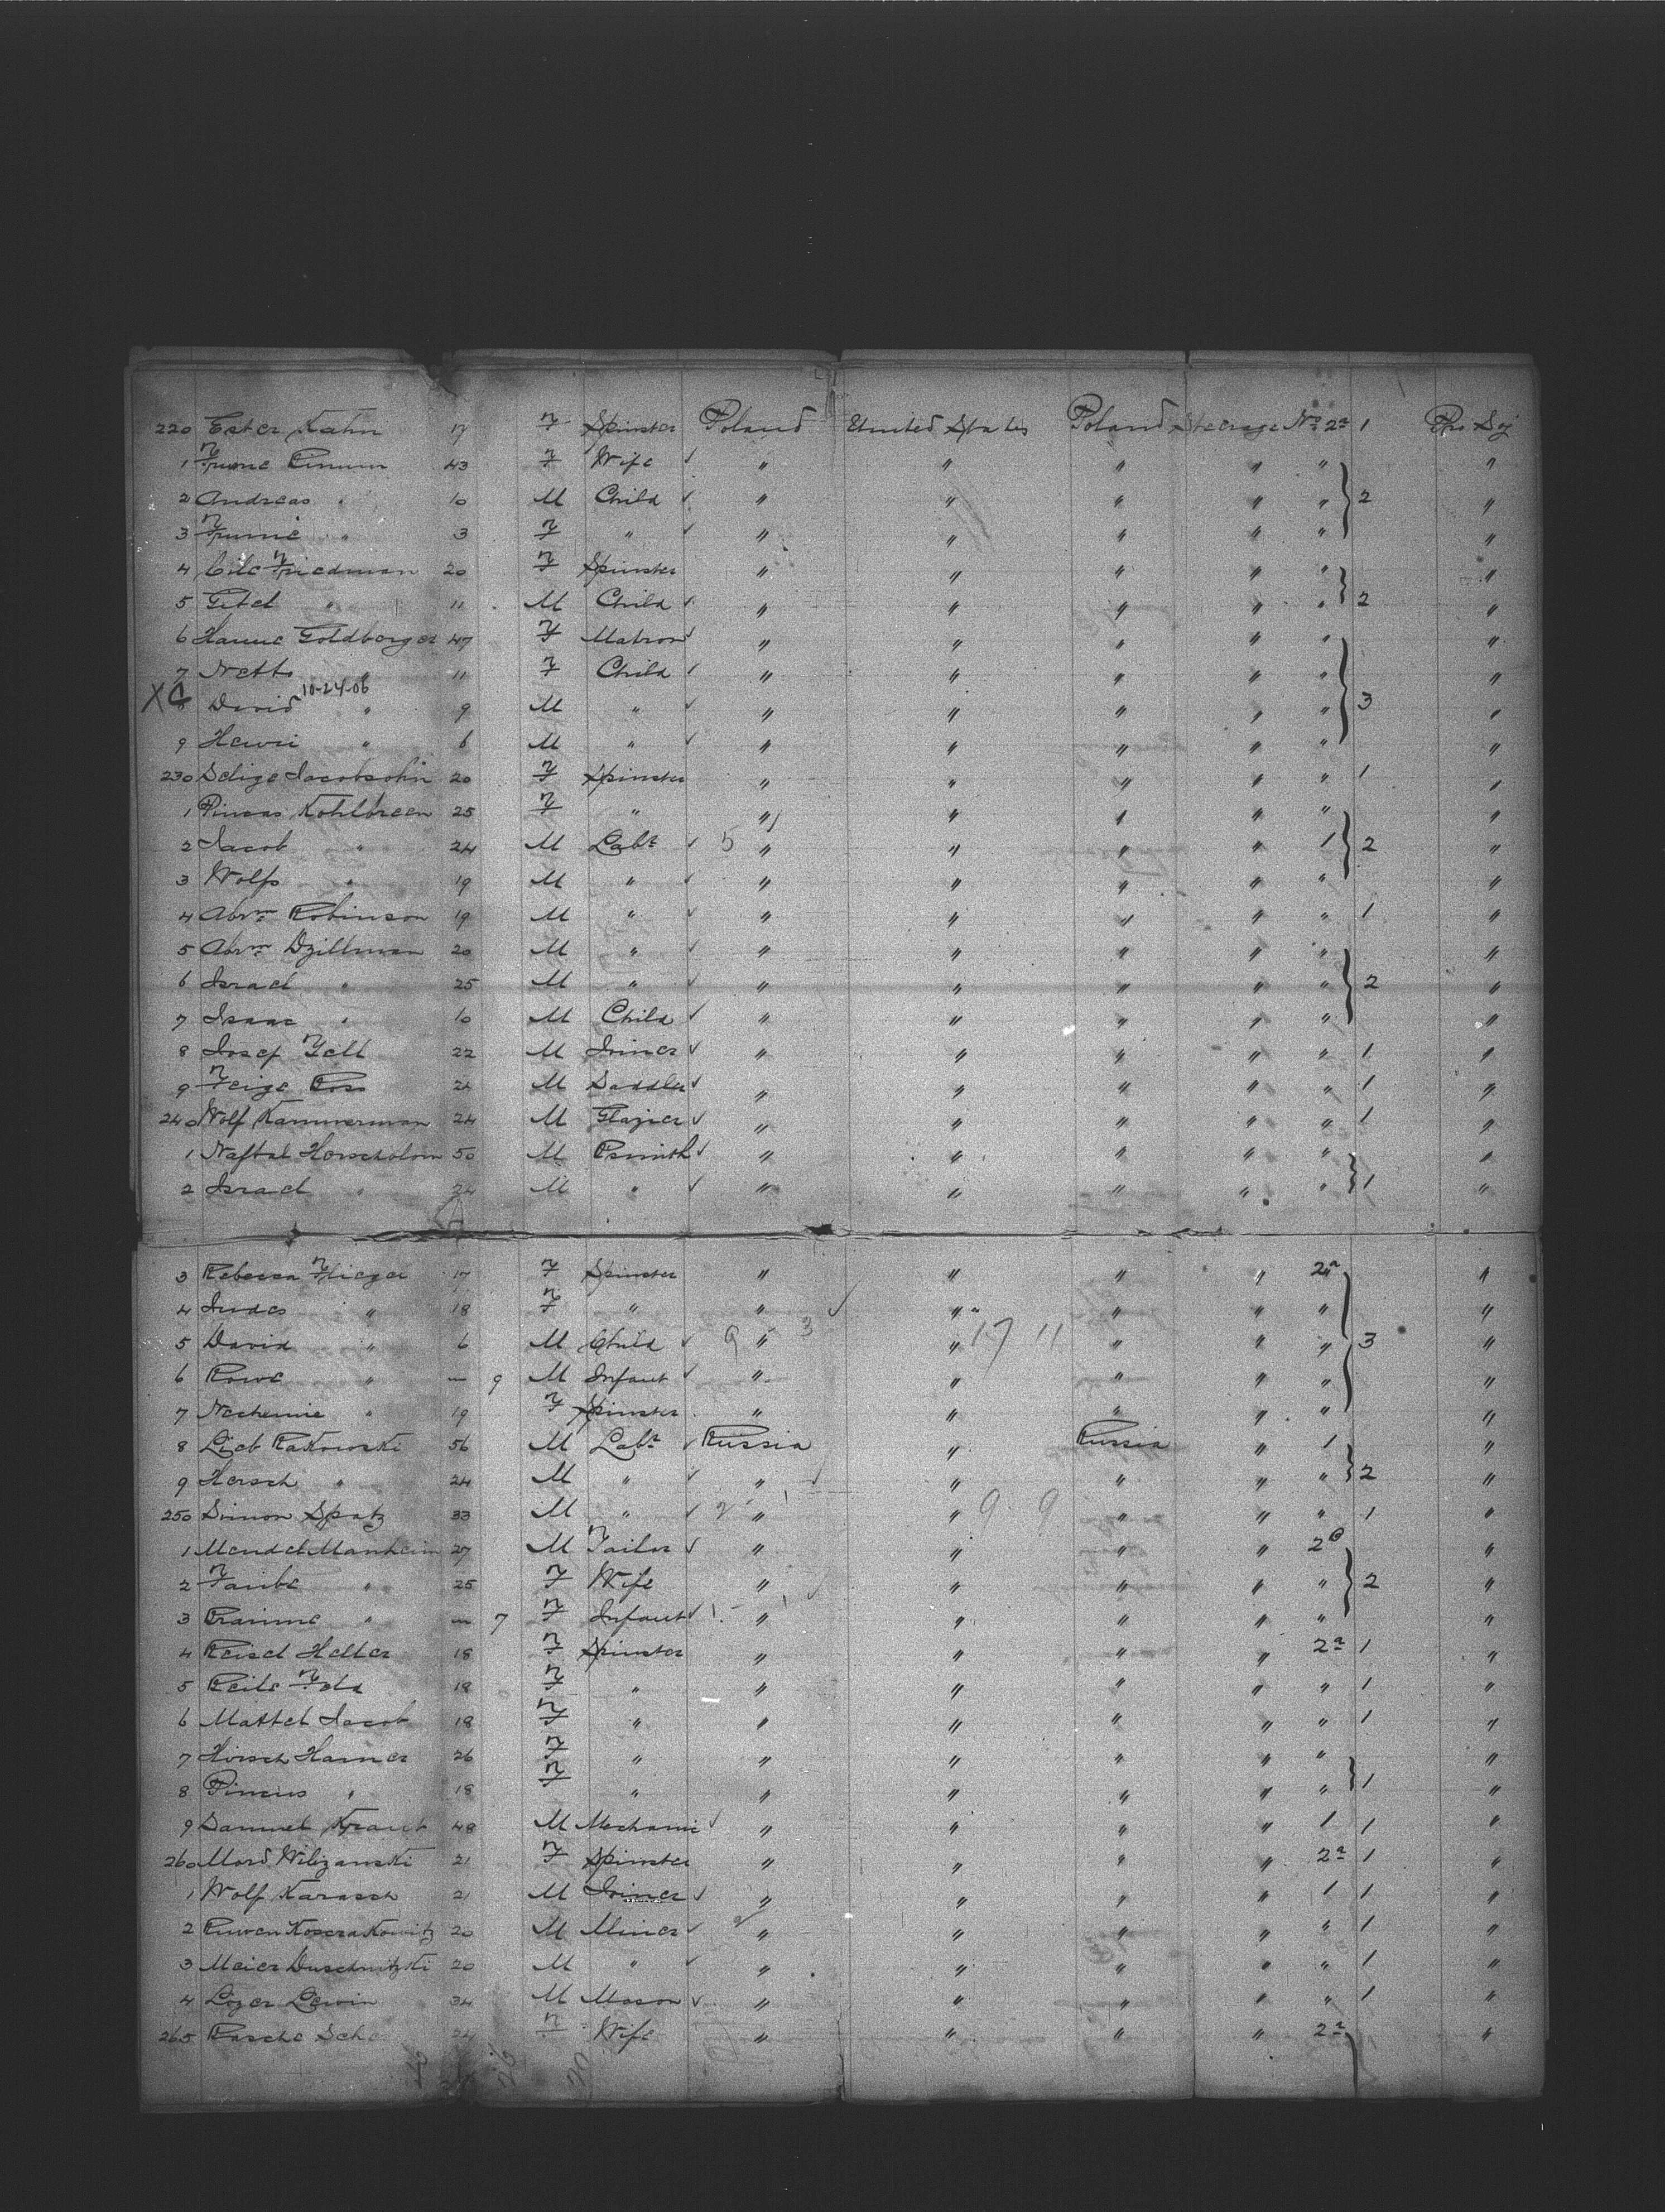 220 Ester Kahn 17 F Spinster Poland United States Poland Steerage No 2a 1 Pro Soj
1 43 F Wife ✓ " " " " " "
2 Andreas " 10 M Child ✓ " " " " " 2 "
3 " 3 F " ✓ " " " " " "
4 Cile Friedman 20 F Spinster " " " " " "
5 Gitel " 11 M Child ✓ " " " " " 2 "
6 Hanne Goldberger 47 F Matron ✓ " " " " " "
7 Netti " 11 F Child ✓ " " " " " "
XC 8 David 10-24-06 " 9 M " ✓ " " " " " 3 "
9 Henri " 6 M " ✓ " " " " " "
230 Selige Jacobsohn 20 F Spinster " " " " " 1 "
1 Pincas Kohlbreen 25 F " " " " " " "
2 Jacob " 24 M Labr ✓ 5 " " " " 1 2 "
3 Wolf " 19 M " ✓ " " " " " "
4 Abrm Robinson 19 M " ✓ " " " " " 1 "
5 Abrm Dzillman 20 M " ✓ " " " " " "
6 Israel " 25 M " ✓ " " " " " 2 "
7 Isaac " 10 M Child ✓ " " " " " "
8 Josef Fell 22 M Joiner ✓ " " " " " 1 "
9 Feige Ross 21 M Saddler ✓ " " " " " 1 "
240 Wolf Kammerman 24 M Glazier ✓ " " " " " 1 "
1 Naftal Horscholom 50 M Bsmith ✓ " " " " " "
2 Israel " 24 M " ✓ " " " " " 1 "
3 Rebecca Flieger 17 F Spinster " " " " 2a "
4 Judes " 18 F " " ✓ " " " " "
5 David " 6 M Child ✓ 9 " 3 " 17 11 " " " 3 "
6 Rowe " 9 M Infant ✓ " " " " " "
7 Nechemie " 19 F Spinster " " " " " "
8 Lieb Rakowski 56 M Labr ✓ Russia " Russia " 1 "
9 Hersch " 24 M " ✓ " ✓ " " " " 2 "
250 Simon Spatz 33 M " ✓ 2 " " 9 9 " " " 1 "
1 Mendel Manheim 27 M Tailor ✓ " " " " 2 "
2 Taube " 25 F Wife " " " " " 2 "
3 " 7 F Infant ✓ " " " " " "
4 Reisel Heller 18 F Spinster " " " " 2a 1 "
5 Reile 18 F " " " " " " 1 "
6 Mattel Jacob 18 F " " " " " " 1 "
7 Hirsch Hamer 26 F " " " " " " "
8 Pincus " 18 F " " " " " " 1 "
9 Samuel Kraut 48 M Mechanic ✓ " " " " 1 1 "
260 Mord Wilizanski 21 F Spinster " " " " 2a 1 "
1 Wolf Karasch 21 M Joiner ✓ " " " " 1 1 "
2 Ruwen Koserakowitz 20 M Miner ✓ " " " " " 1 "
3 Meier Duschnitzki 20 M " ✓ " " " " " 1 "
4 Lozer Lewin 34 M Mason ✓ " " " " " 1 "
265 Rasche 24 F Wife " " " " 2a "